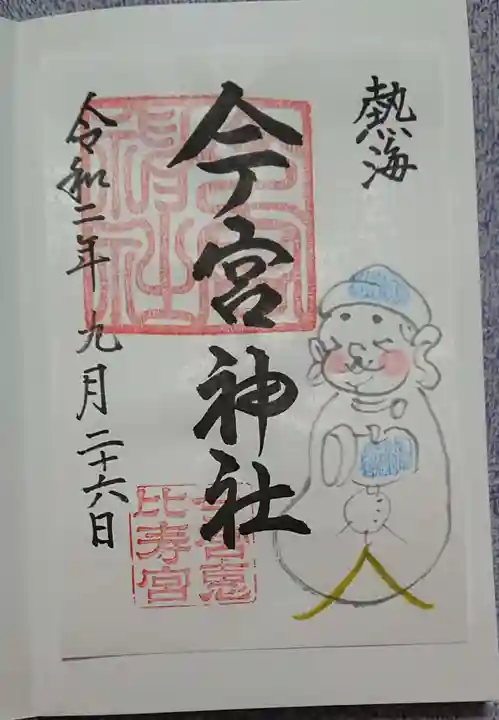 熱海
今宮神社
令和二年 九月二十六日
今宮
神社
比寿宮